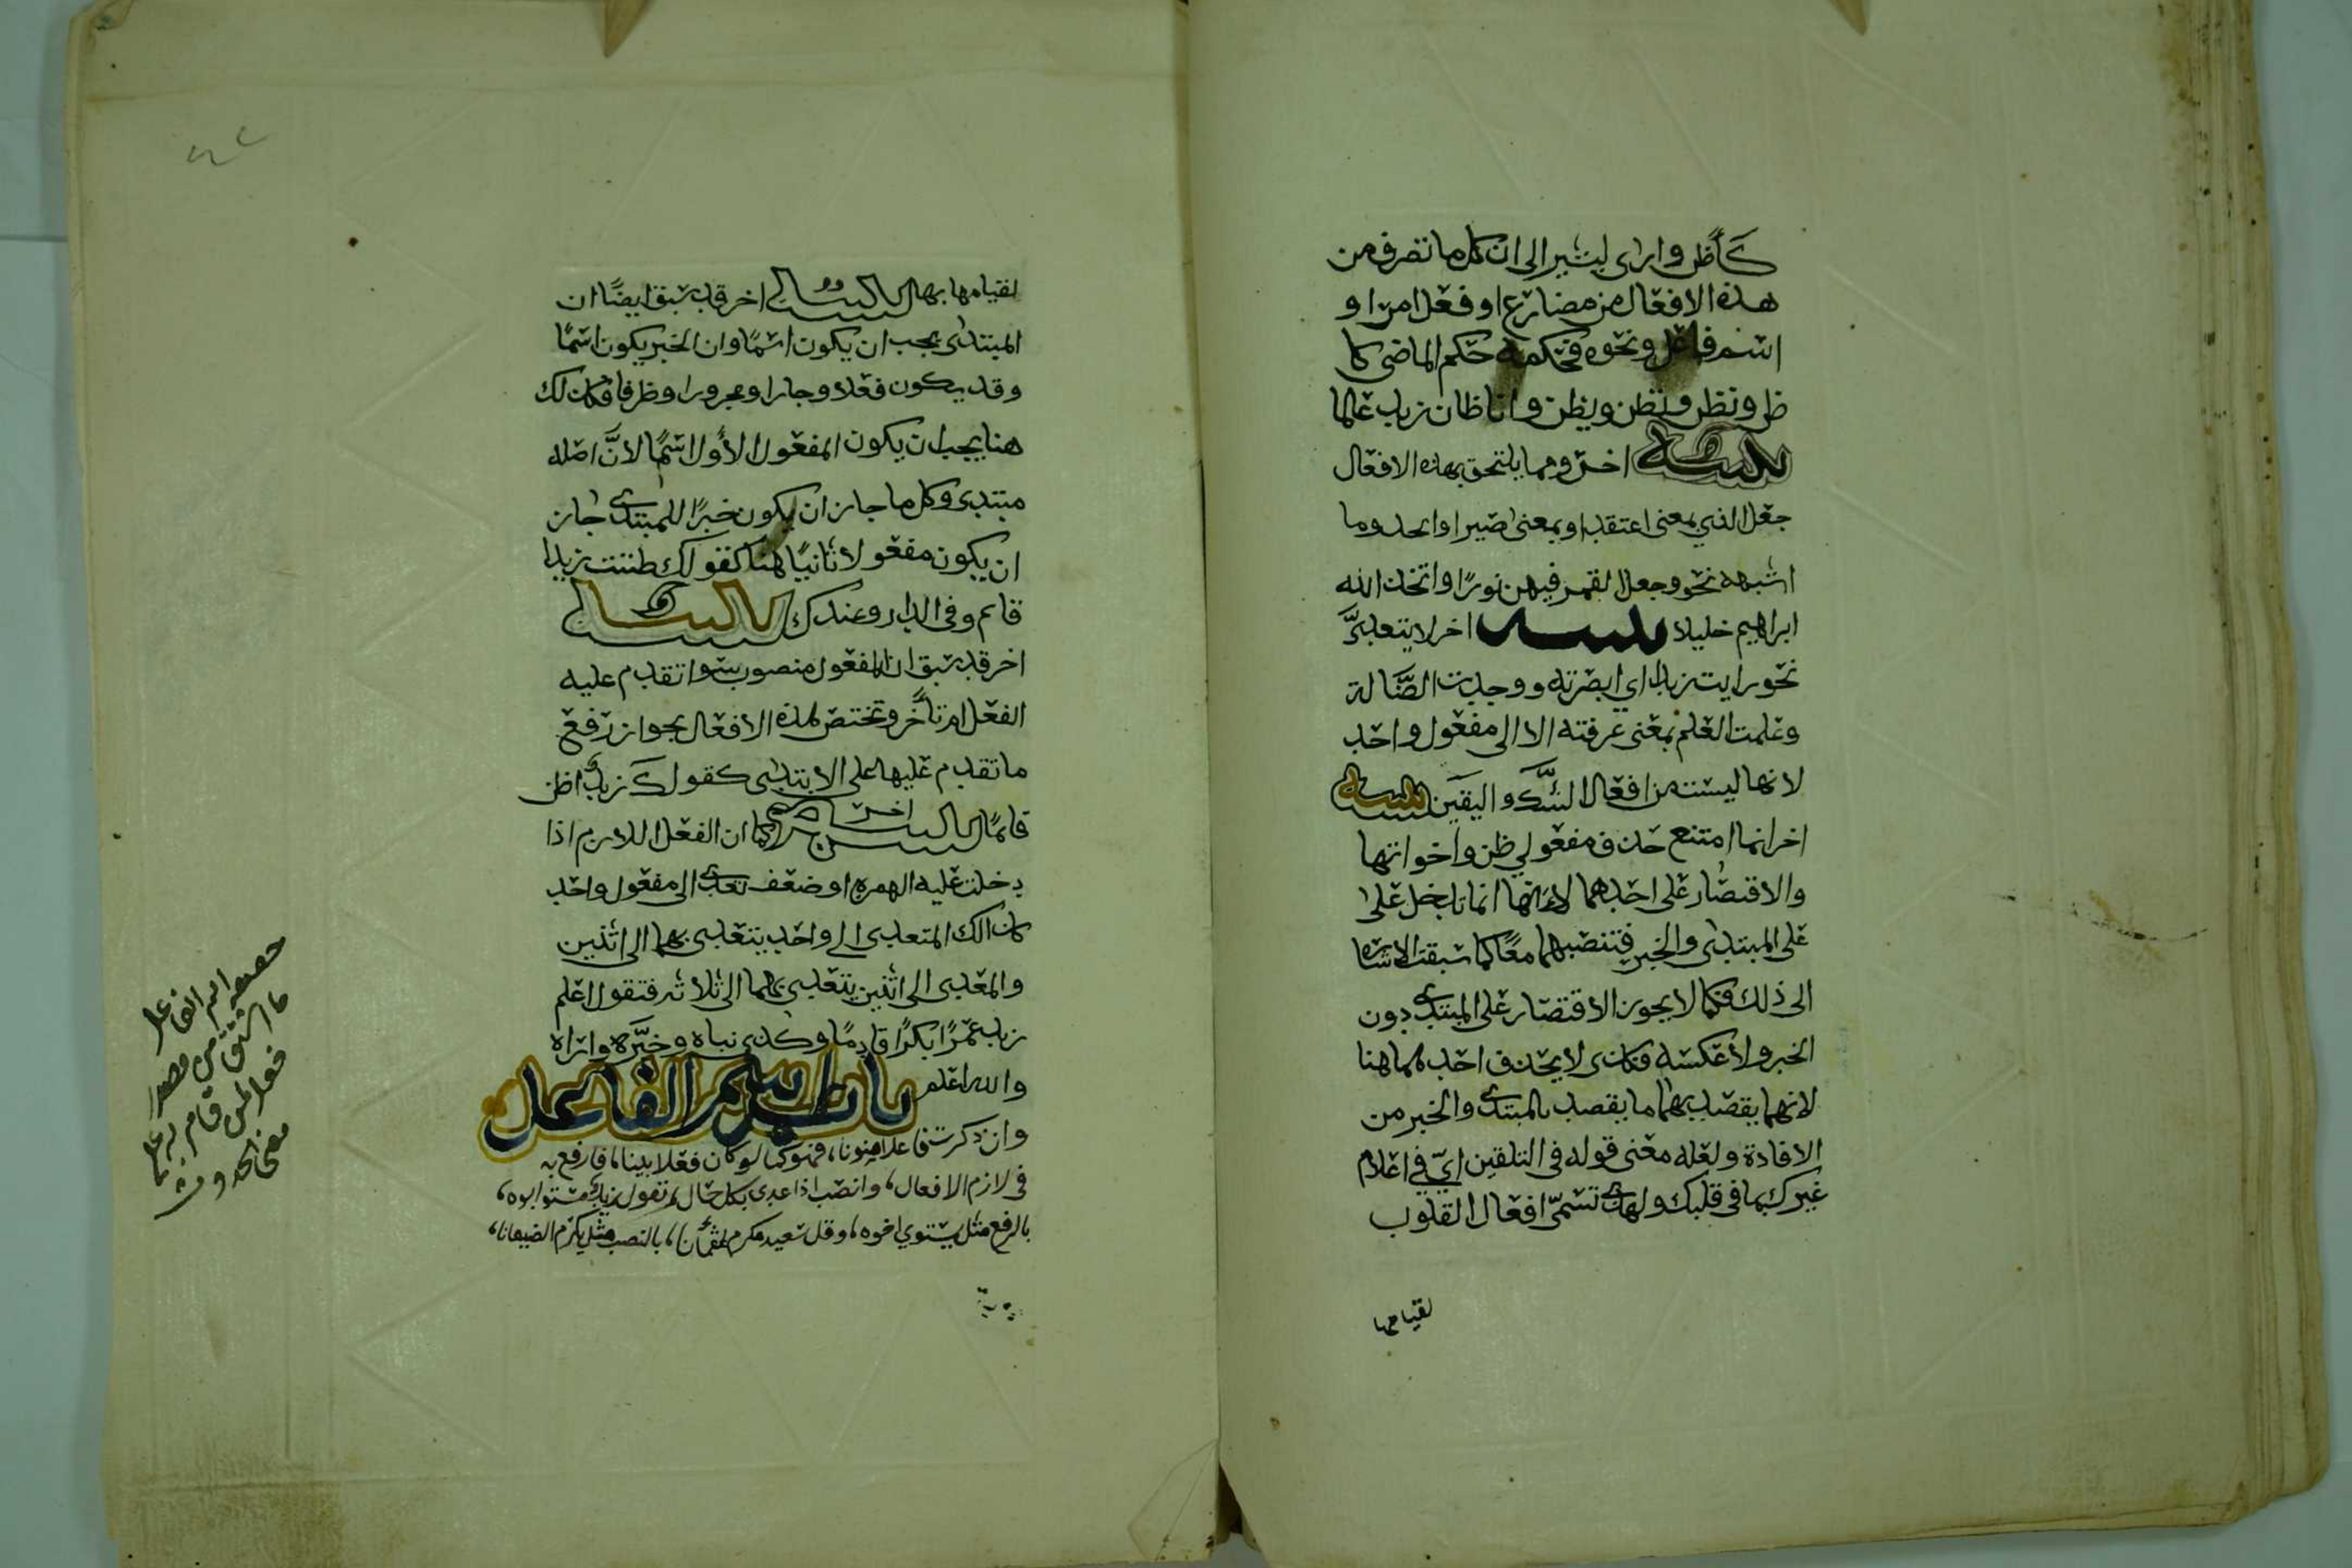 كأظن وارى ليشير الى ان كل ما تصرف من
هذه الافعال من مضارع او فعل امر او
اسم فاعل ونحوه فحكمه حكم الماضي كا
ظن ونظن وتظن ويظن وانا ظان زيد عالما
تنبيه اخر ومما يلتحق بهذه الافعال
جعل الذي بمعنى اعتقد او بمعنى صير او اتخذ وما
اشبهه نحو وجعل القمر فيهن نورًا واتخذ الله
ابراهيم خليلا تنبيه اخر لا يتعدىَّ
نحو رايت زيدا اي ابصرته ووجدت الضَّالة
وعلمت العلم بمعنى عرفته الا الى مفعول واحد
لانها ليست من افعال الشَّك واليقين تنبيه
اخر انما امتنع حذف مفعولي ظن واخواتها
والاقتصار على احدهما لانها انما تدخل على
على المبتدى والخبر فتنصبهما معًا كما سبقت الاشاره
الى ذلك فكما لا يجوز الاقتصار على المبتدى دون
الخبر ولا عكسه فكذى لا يحذف احدهما هنا
لانهما يقصد بهما ما يقصد بالمبتدى والخبر من
الافادة ولعله معنى قوله في التلقين ايّ في اعلام
غيرك بما في قلبك ولهذى تسمّى افعال القلوب
لقيامها
لقيامها بها تنبيه اخر قد سبق ايضًا ان
المبتدى يجب ان يكون اسمًا وان الخبر يكون اسمًا
وقد يكون فعلا وجارا ومجرورا وظرفا فكذلك
هنا يجب ان يكون المفعول الأول اسمًا لانَّ اصله
مبتدى وكل ما جاز ان يكون خبرًا للمبتدى جاز
ان يكون مفعولا ثانيًا هنا كقولك ظننت زيدا
قام وفي الدار وعندك تنبيه
اخر قد سبق ان المفعول منصوب سوا تقدم عليه
الفعل ام تأخر وتختص هذه الافعال بجواز رفع
ما تقدم عليها على الابتدى كقولك زيدٌ اظن
قائمًا تنبيه اخر كما ان الفعل اللازم اذا
دخلت عليه الهمزه او ضعف تعدى الى مفعول واحد
كذالك المتعدى الى واحد يتعدى بهما الى اثنين
والمعدى الى اثنين يتعدى بهما الى ثلاثه فتقول اعلم
زيد عمرًا بكرًا قادمًا وكذى نباه وخبَّره واراه
والله اعلم باب اسم الفاعل
وان ذكرت فاعلا منونا، فهو كما لو كان فعلا بينا، فارفع به
في لازم الافعال، وانصب اذا عدى بكل حال، تقول زيد مستو ابوه،
بالرفع مثل يستوي اخوه، وقل سعيد مكرم عثمانا، بالنصب مثل يكرم الضيفانا،
اسم الفاعل
ما اشتق من مصدر
فعل لمن قام به على
معنى الحدوث